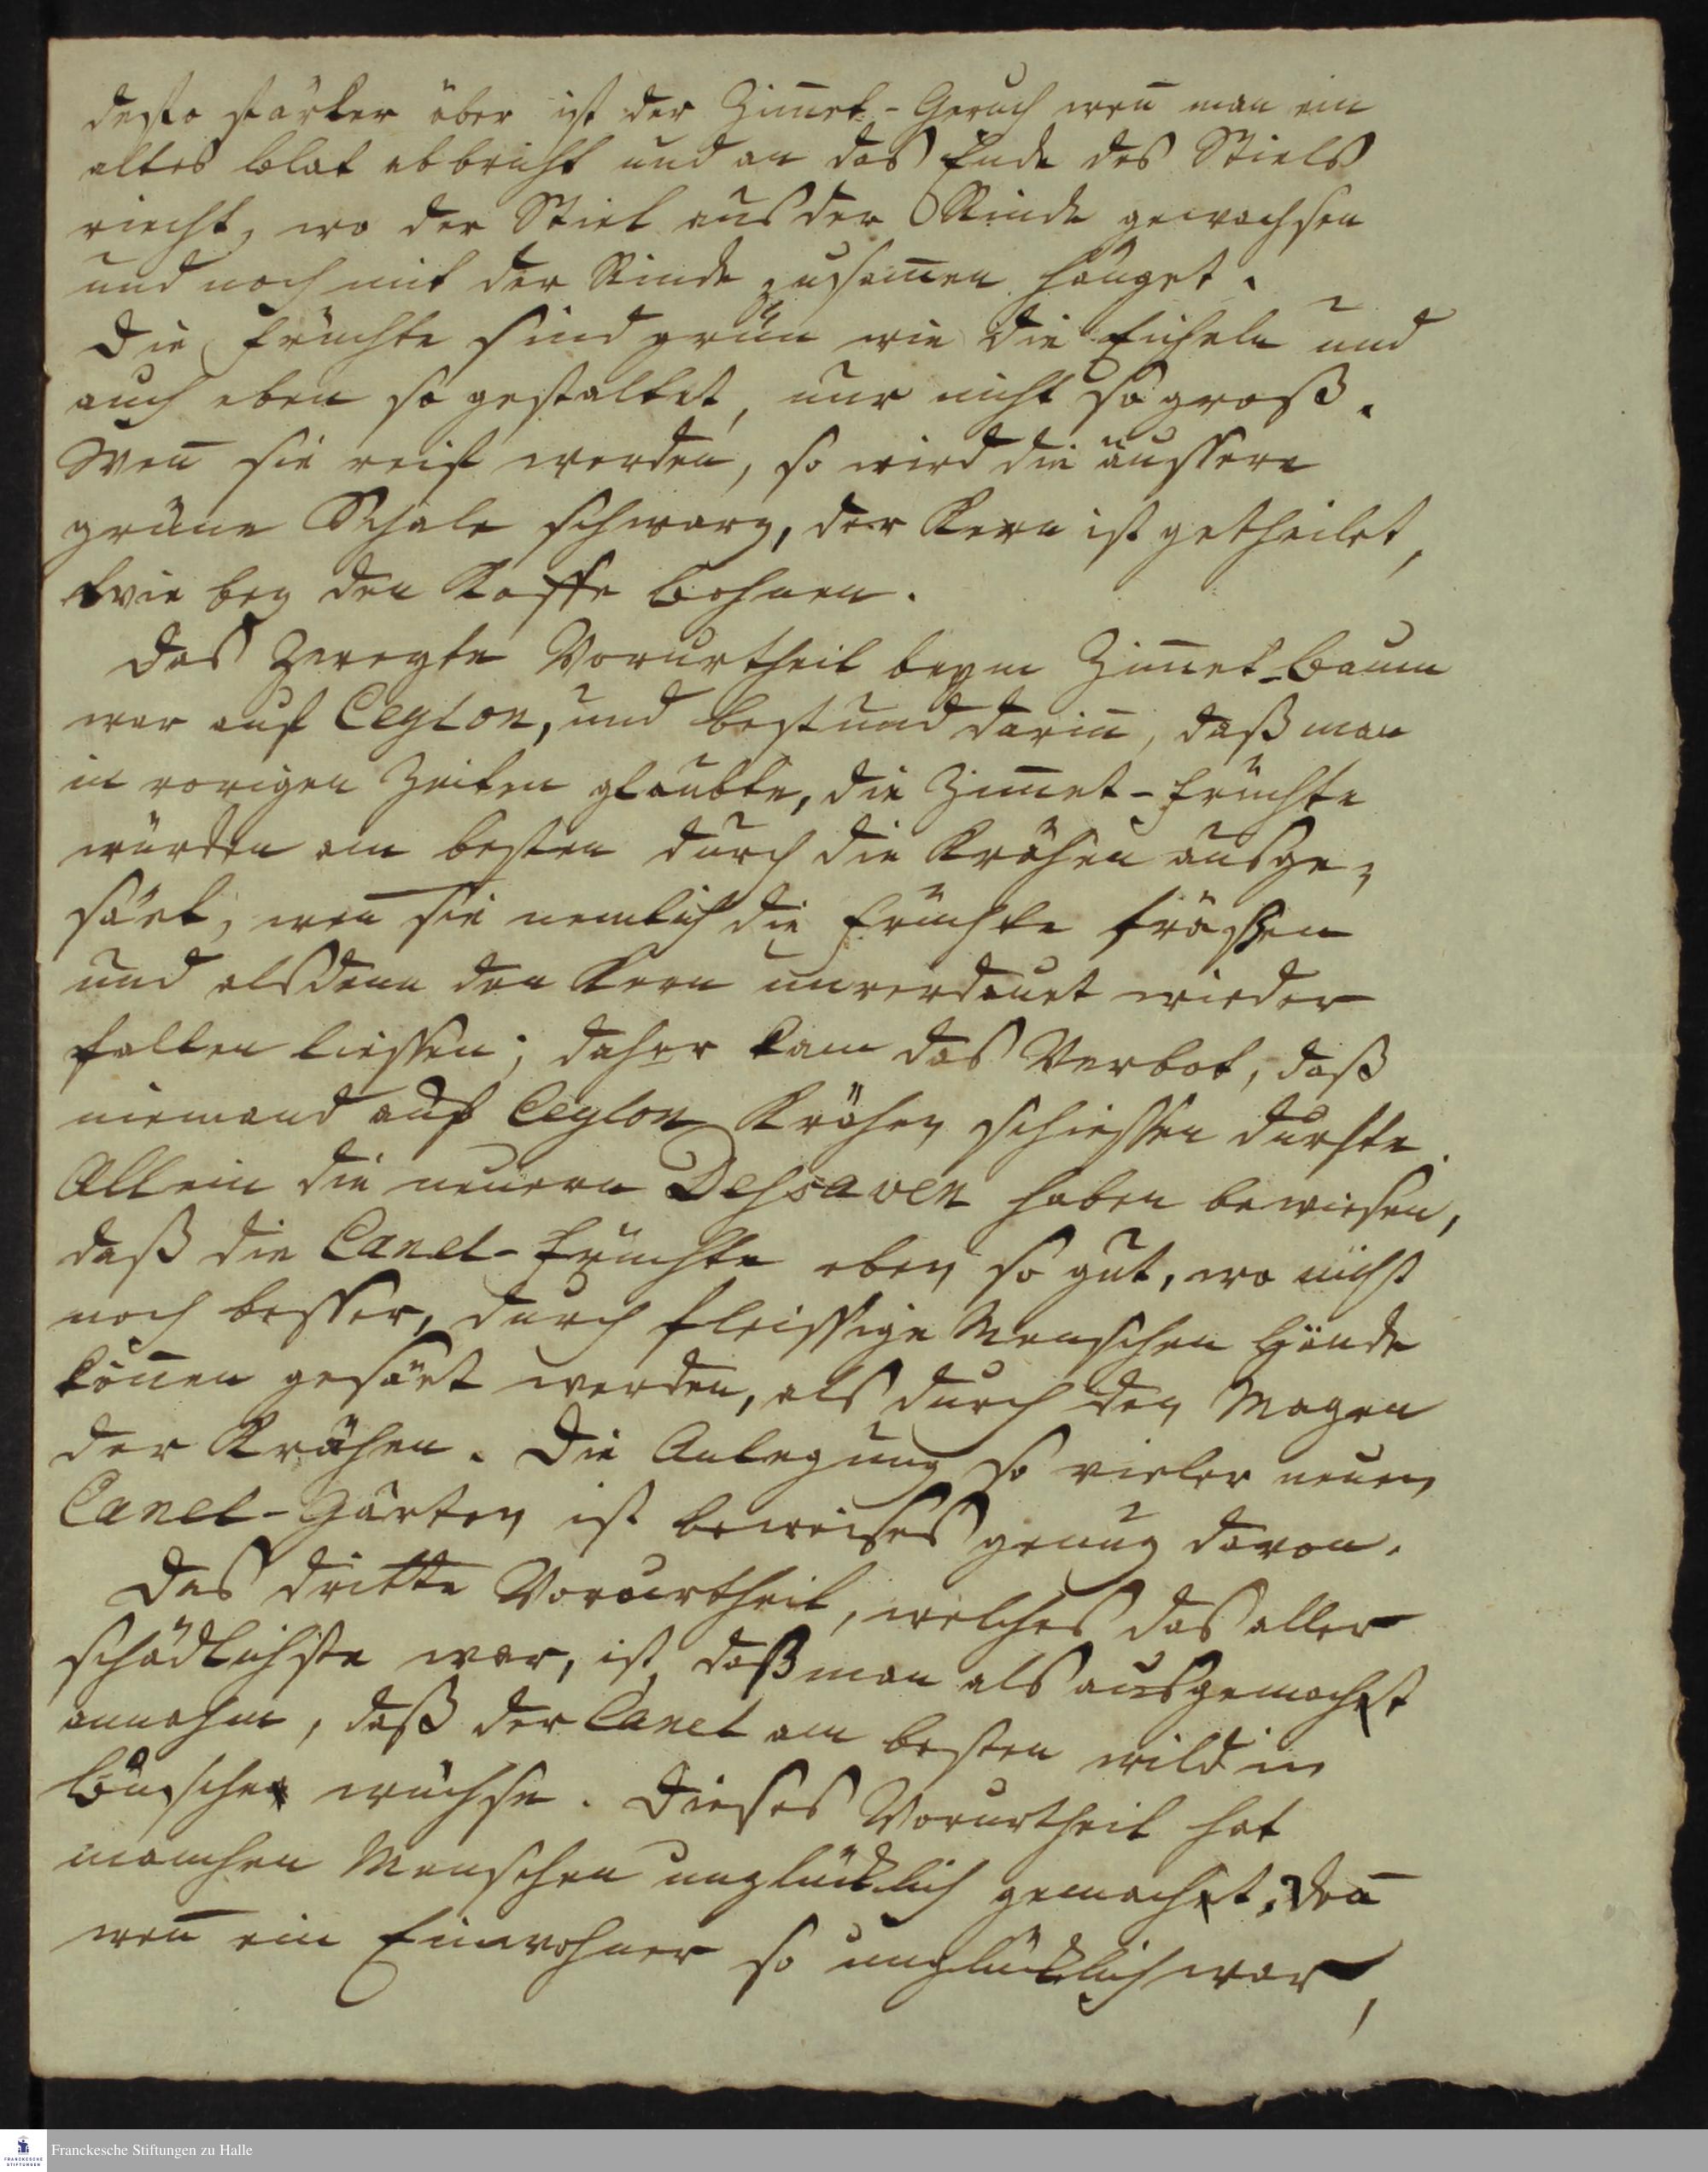 desto stärker aber ist der Zim̅et-Geruch wen̅ man ein
altes blat abbricht und an das Ende des Stiels
riecht, wo der Stiel aus der Rinde gewachsen
und noch mit der Rinde zusam̅en hänget.
Die Früchte sind grün wie die Eicheln und
auch eben so gestaltet, nur nicht so groß.
Wen̅ sie reif werden, so wird die äussere
grüne Schale schwarz, der Kern ist getheilet,
wie bey den Kaffe bohnen.
Das Zweyte Vorurtheil beym Zim̅et-baum
war auf Ceylon, und bestund darin̅, daß man
in vorigen Zeiten glaubte, die Zim̅et-Früchte
würden am besten durch die Krähen ausge-
säet, wen̅ sie nemlich die Früchte frässen
und alsdenn den Kern unverdauet wieder
fallen liessen; daher kam das Verbot, daß
niemand auf Ceylon Krähen schiessen durfte.
Allein die neuern Dessaven haben bewiesen,
daß die Canel-Früchte eben so gut, wo nicht
noch besser, durch fleissige Menschen Hände
kön̅en gesäet werden, als durch den Magen
der Krähen. Die Anlegung so vieler neuen
Canel-Gärten ist beweises genug davon.
Das dritte Vorurtheil, welches das aller
schädlichste war, ist, daß man als ausgemacht
annahm, daß der Canel am besten wild in
büsche wüchse. Dieses Vorurtheil hat
manchen Menschen unglücklich gemacht. Den̅
wen̅ ein Einwohner so unglücklich war,
Franckesche Stiftungen zu Halle